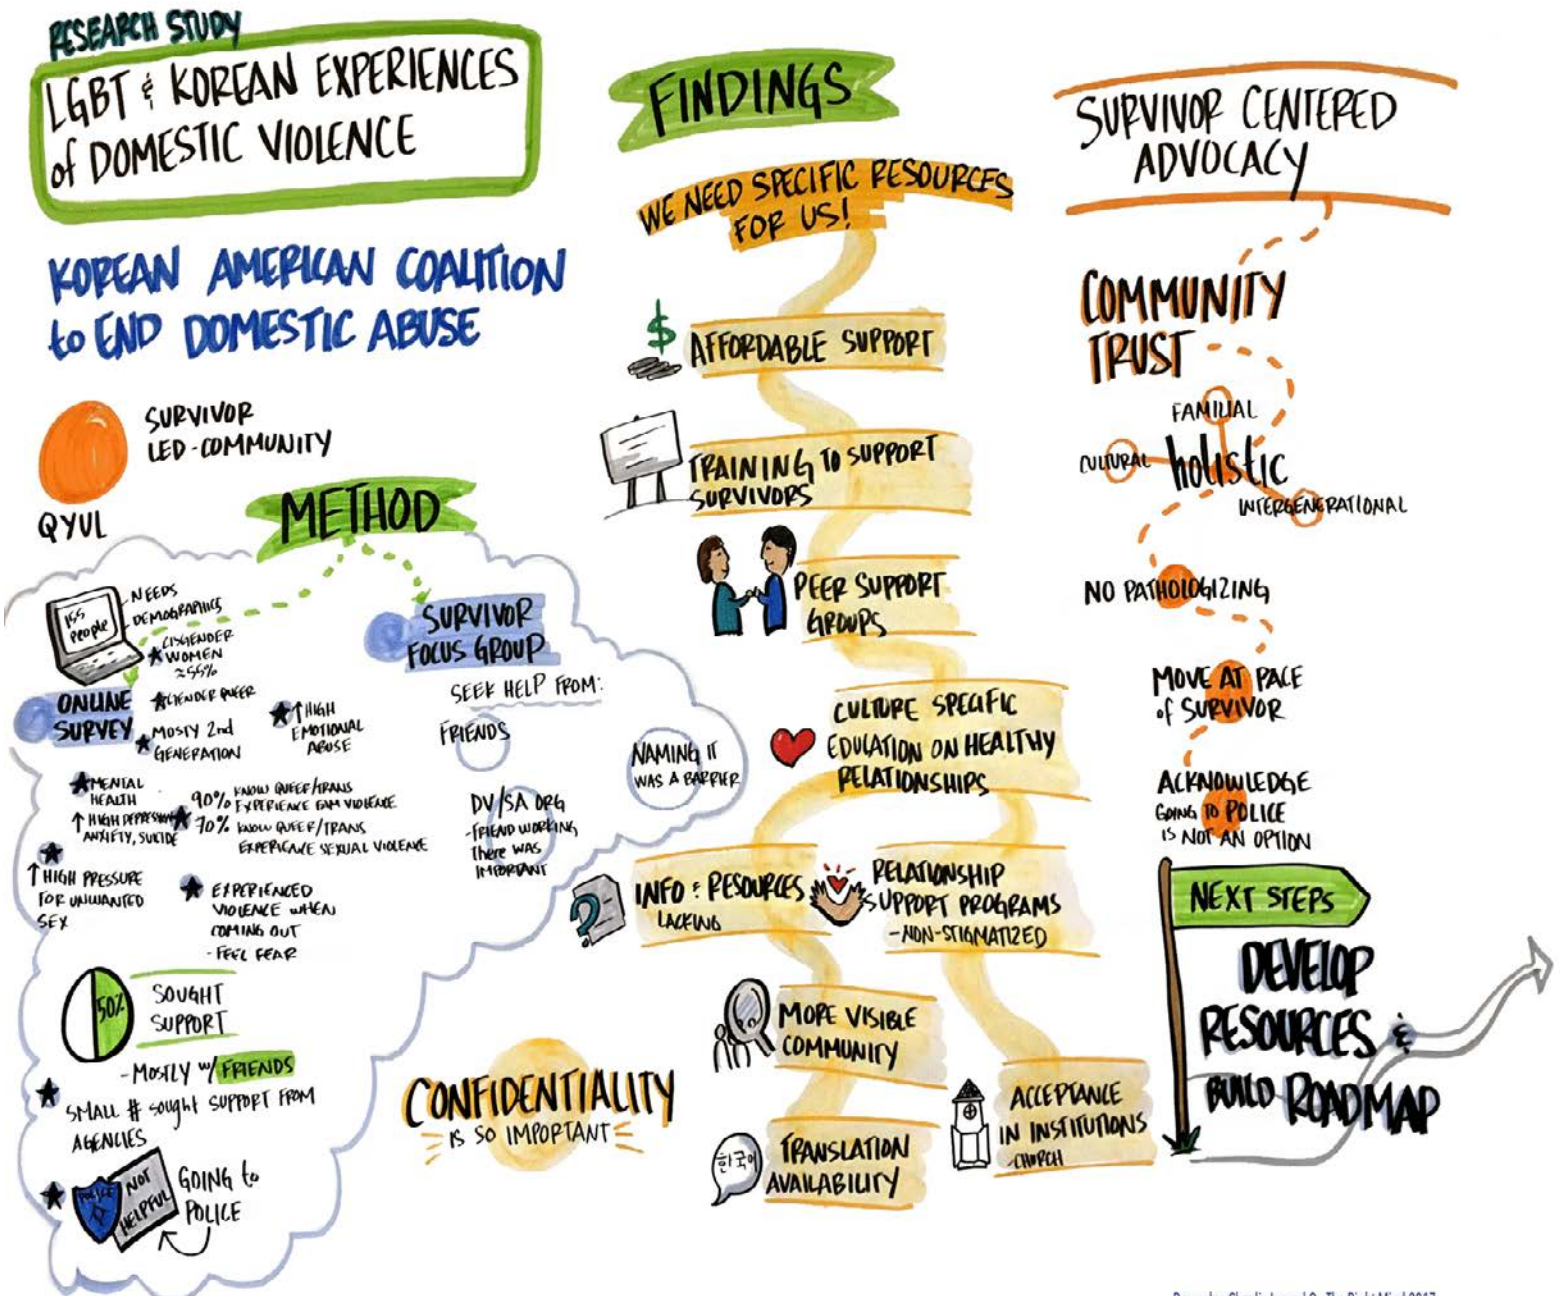 RESEARCH STUDY
LGBT & KOREAN EXPERIENCES
of DOMESTIC VIOLENCE
KOREAN AMERICAN COALITION
to END DOMESTIC ABUSE
SURVIVOR
LED-COMMUNITY
QYUL
METHOD
155
people
NEEDS
DEMOGRAPHICS
CISGENDER
WOMEN
≈55%
GENDER QUEER
MOSTY 2nd
GENERATION
ONLINE
SURVEY
↑ HIGH
EMOTIONAL
ABUSE
MENTAL
HEALTH
↑ HIGH DEPRESSION
ANXIETY, SUICIDE
90% KNOW QUEER/TRANS
EXPERIENCE FAM VIOLENCE
70% KNOW QUEER/TRANS
EXPERIENCE SEXUAL VIOLENCE
↑ HIGH PRESSURE
FOR UNWANTED
SEX
EXPERIENCED
VIOLENCE WHEN
COMING OUT
- FEEL FEAR
50%
SOUGHT
SUPPORT
- MOSTLY w/ FRIENDS
SMALL # sought SUPPORT FROM
AGENCIES
POLICE
NOT
HELPFUL
GOING to
POLICE
SURVIVOR
FOCUS GROUP
SEEK HELP FROM:
FRIENDS
DV/SA ORG
- FRIEND WORKING
there WAS
IMPORTANT
NAMING IT
WAS A BARRIER
CONFIDENTIALITY
IS SO IMPORTANT
FINDINGS
WE NEED SPECIFIC RESOURCES
FOR US!
$
AFFORDABLE SUPPORT
TRAINING to SUPPORT
SURVIVORS
PEER SUPPORT
GROUPS
CULTURE SPECIFIC
EDUCATION ON HEALTHY
RELATIONSHIPS
?
INFO & RESOURCES
LACKING
RELATIONSHIP
SUPPORT PROGRAMS
- NON-STIGMATIZED
MORE VISIBLE
COMMUNITY
한국어
TRANSLATION
AVAILABILITY
ACCEPTANCE
IN INSTITUTIONS
- CHURCH
SURVIVOR CENTERED
ADVOCACY
COMMUNITY
TRUST
FAMILIAL
CULTURAL
holistic
INTERGENERATIONAL
NO PATHOLOGIZING
MOVE AT PACE
of SURVIVOR
ACKNOWLEDGE
GOING TO POLICE
IS NOT AN OPTION
NEXT STEPS
DEVELOP
RESOURCES &
BUILD ROADMAP